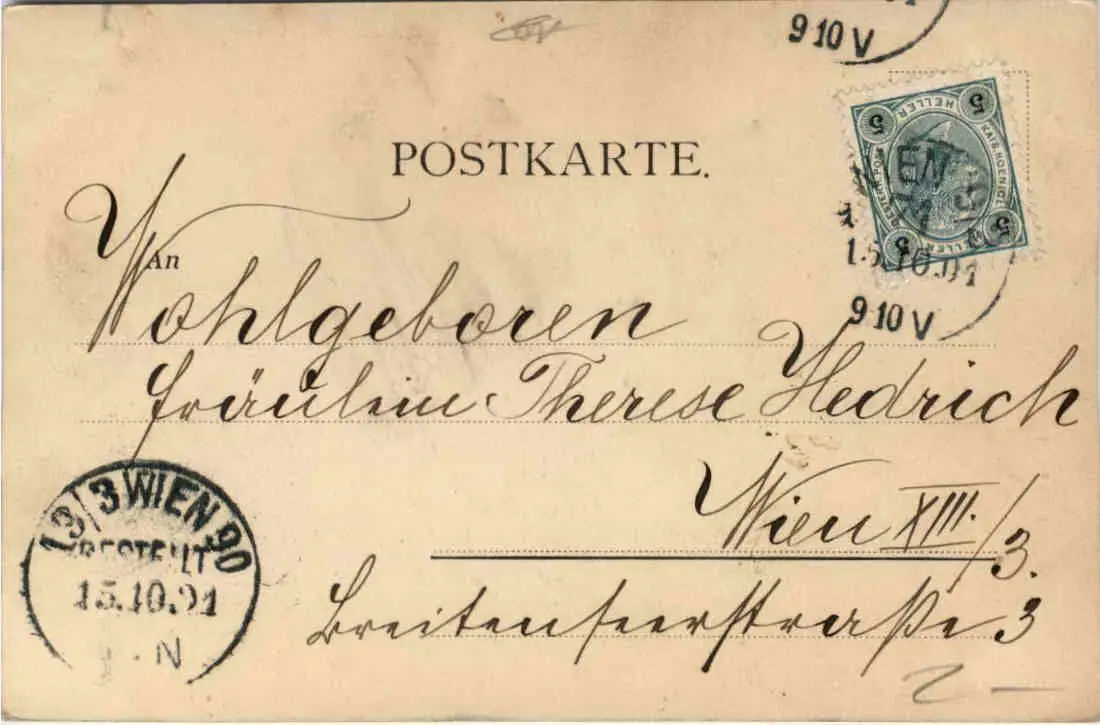 9 10 V
POSTKARTE.
5 HELLER 5
5 HELLER 5
15.10.01
9 10 V
An
Wohlgeboren
Fräulein Therese Hedrich
Wien XIII./3.
Breitenseerstraße 3
13/3 WIEN 90
BESTELLT
15.10.01
N